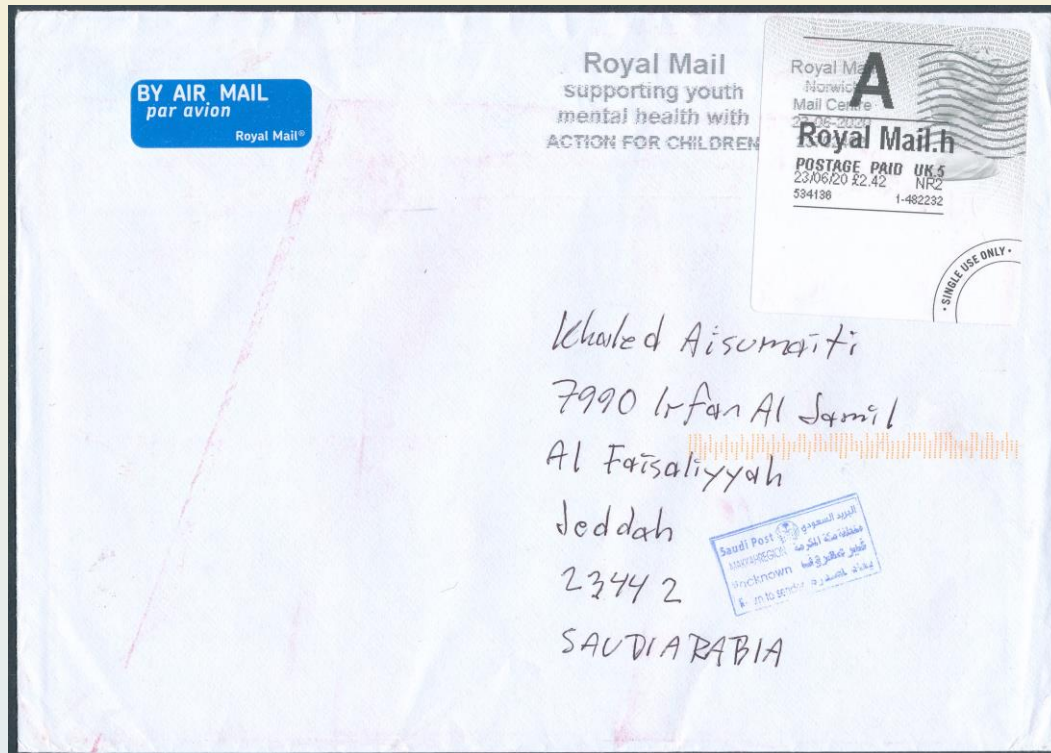 BY AIR MAIL
par avion
Royal Mail®
Royal Mail
supporting youth
mental health with
ACTION FOR CHILDREN
A
Royal Mail
Norwich
Mail Centre
23-06-2020
Royal Mail.h
POSTAGE PAID UK.5
23/06/20 £2.42 NR2
534136 1-482232
• SINGLE USE ONLY •
Khaled Aisumaiti
7990 Irfan Al Jamil
Al Faisaliyyah
Jeddah
23442
SAUDI ARABIA
Saudi Post البريد السعودي
MAKKAHREGION منطقة مكة المكرمة
Unknown غير معروف
to sender يعاد لمصدره